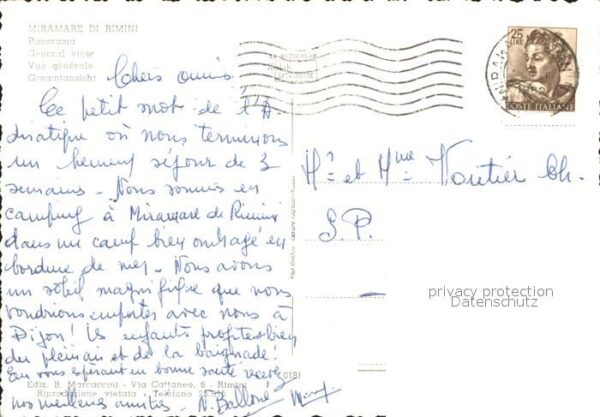 MIRAMARE DI RIMINI
Panorama
General view
Vue générale
Gesamtansicht
Chers amis
Ce petit mot de l'A-
driatique où nous terminons
un séjour de 3
semaines - Nous sommes en
camping à Miramare de Rimini
dans un camp bien ombragé en
bordure de mer - Nous avons
un soleil magnifique que nous
voudrions emporter avec nous à
Dijon! Les enfants profitent bien
du plein air et de la baignade!
En vous espérant en bonne santé recevez
nos meilleures amitiés N. Ballone
Ediz. B. Marcaccini - Via Cattaneo, 6 - Rimini
Riproduzione vietata - Telefono
25
LIRE
POSTE ITALIANE
Mr et Mme Voutier Ch.
S.P.
privacy protection
Datenschutz